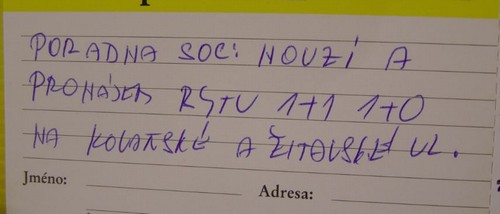 PORADNA SOC: NOUZÍ A
PRONÁJEM BYTU 1+1 1+0
NA A ŽITAVSKÉ UL.
Jméno:
Adresa: